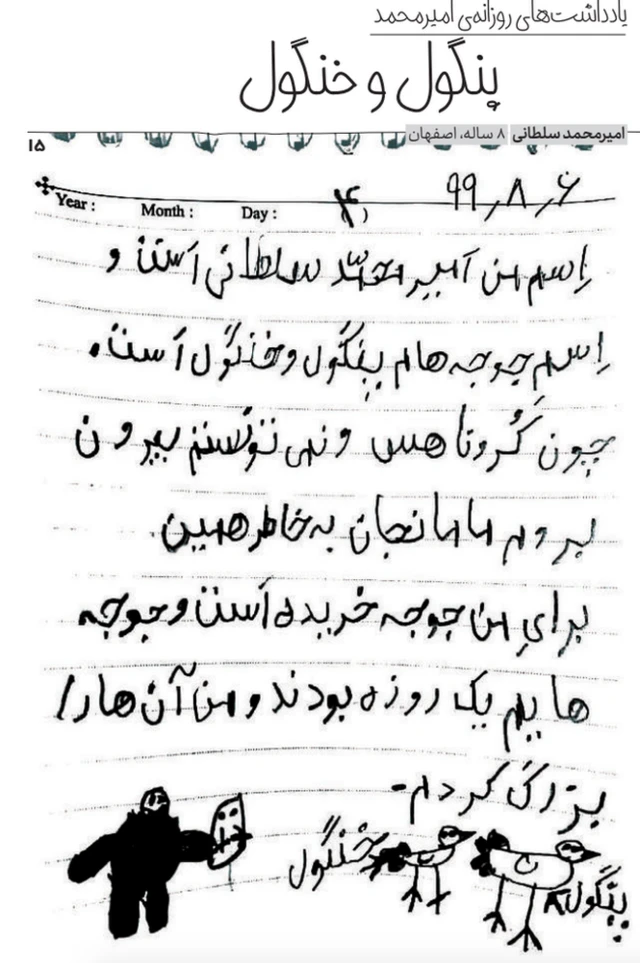 یادداشت‌های روزانه‌ی امیرمحمد
پنگول و خنگول
امیرمحمد سلطانی ۸ ساله، اصفهان
۱۵
Year : Month : Day : ۹۹٫۸٫۶
اِسم من آمیر محمّد سلطانی آست و
اِسم جوجه هام پنگول و خنگول آست.
چون کُرونا هس و نمی تونستم بیرون
بروم مامانجان به خاطر همین
برایِ من جوجه خریده آست و جوجه
هایم یک روزه بودند و من آن ها را
بزرگ کردم.
خنگول
پنگول